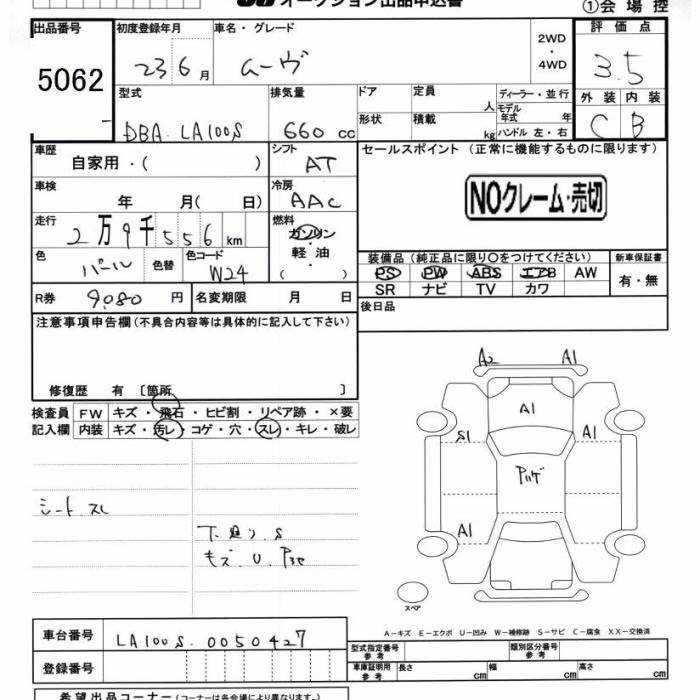 オークション出品申込書
①会場控
出品番号 初度登録年月 車名・グレード 2WD・4WD 評価点
5062 23 6月 ムーヴ 3.5
型式 排気量 ドア 定員 人 ディーラー・並行 外装 内装
DBA. LA100S 660 cc 形状 積載 kg モデル年式 年 ハンドル 左・右 C B
車歴 自家用・( ) シフト AT セールスポイント (正常に機能するものに限ります)
車検 年 月( 日) 冷房 AAC NOクレーム・売切
走行 2万9千556km 燃料 ガソリン・軽油・( )
色 パール 色替 色コード W24 装備品 (純正品に限り○をつけてください) 新車保証書
PS PW ABS エアB AW 有・無
SR ナビ TV カワ
R券 9,080 円 名変期限 月 日 後日品
注意事項申告欄(不具合内容等は具体的に記入して下さい)
修復歴 有 〔箇所 〕
検査員 FW キズ・飛石・ヒビ割・リペア跡・×要
記入欄 内装 キズ・汚レ・コゲ・穴・スレ・キレ・破レ
A2 A1
A1
S1 A1
A1
シートスレ
下廻りS
キズ.U.
スペア
A-キズ E-エクボ U-凹み W-補修跡 S-サビ C-腐食 XX-交換済
車台番号 LA100S.0050427
登録番号
型式指定番号 参考 類別区分番号 参考
車庫証明用 参考 長さ cm 幅 cm 高さ cm
希望出品コーナー(コーナーは各会場により異なります。)